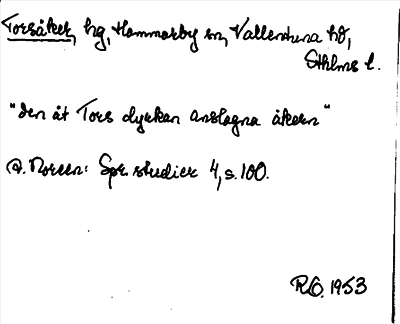 Torsåker, hg, Hammarby sn, Vallentuna hd,
Sthlms l.
"den åt Tors dyrkan anslagna åkern"
A. Noreen: Spr. studier 4, s. 100.
R.O. 1953